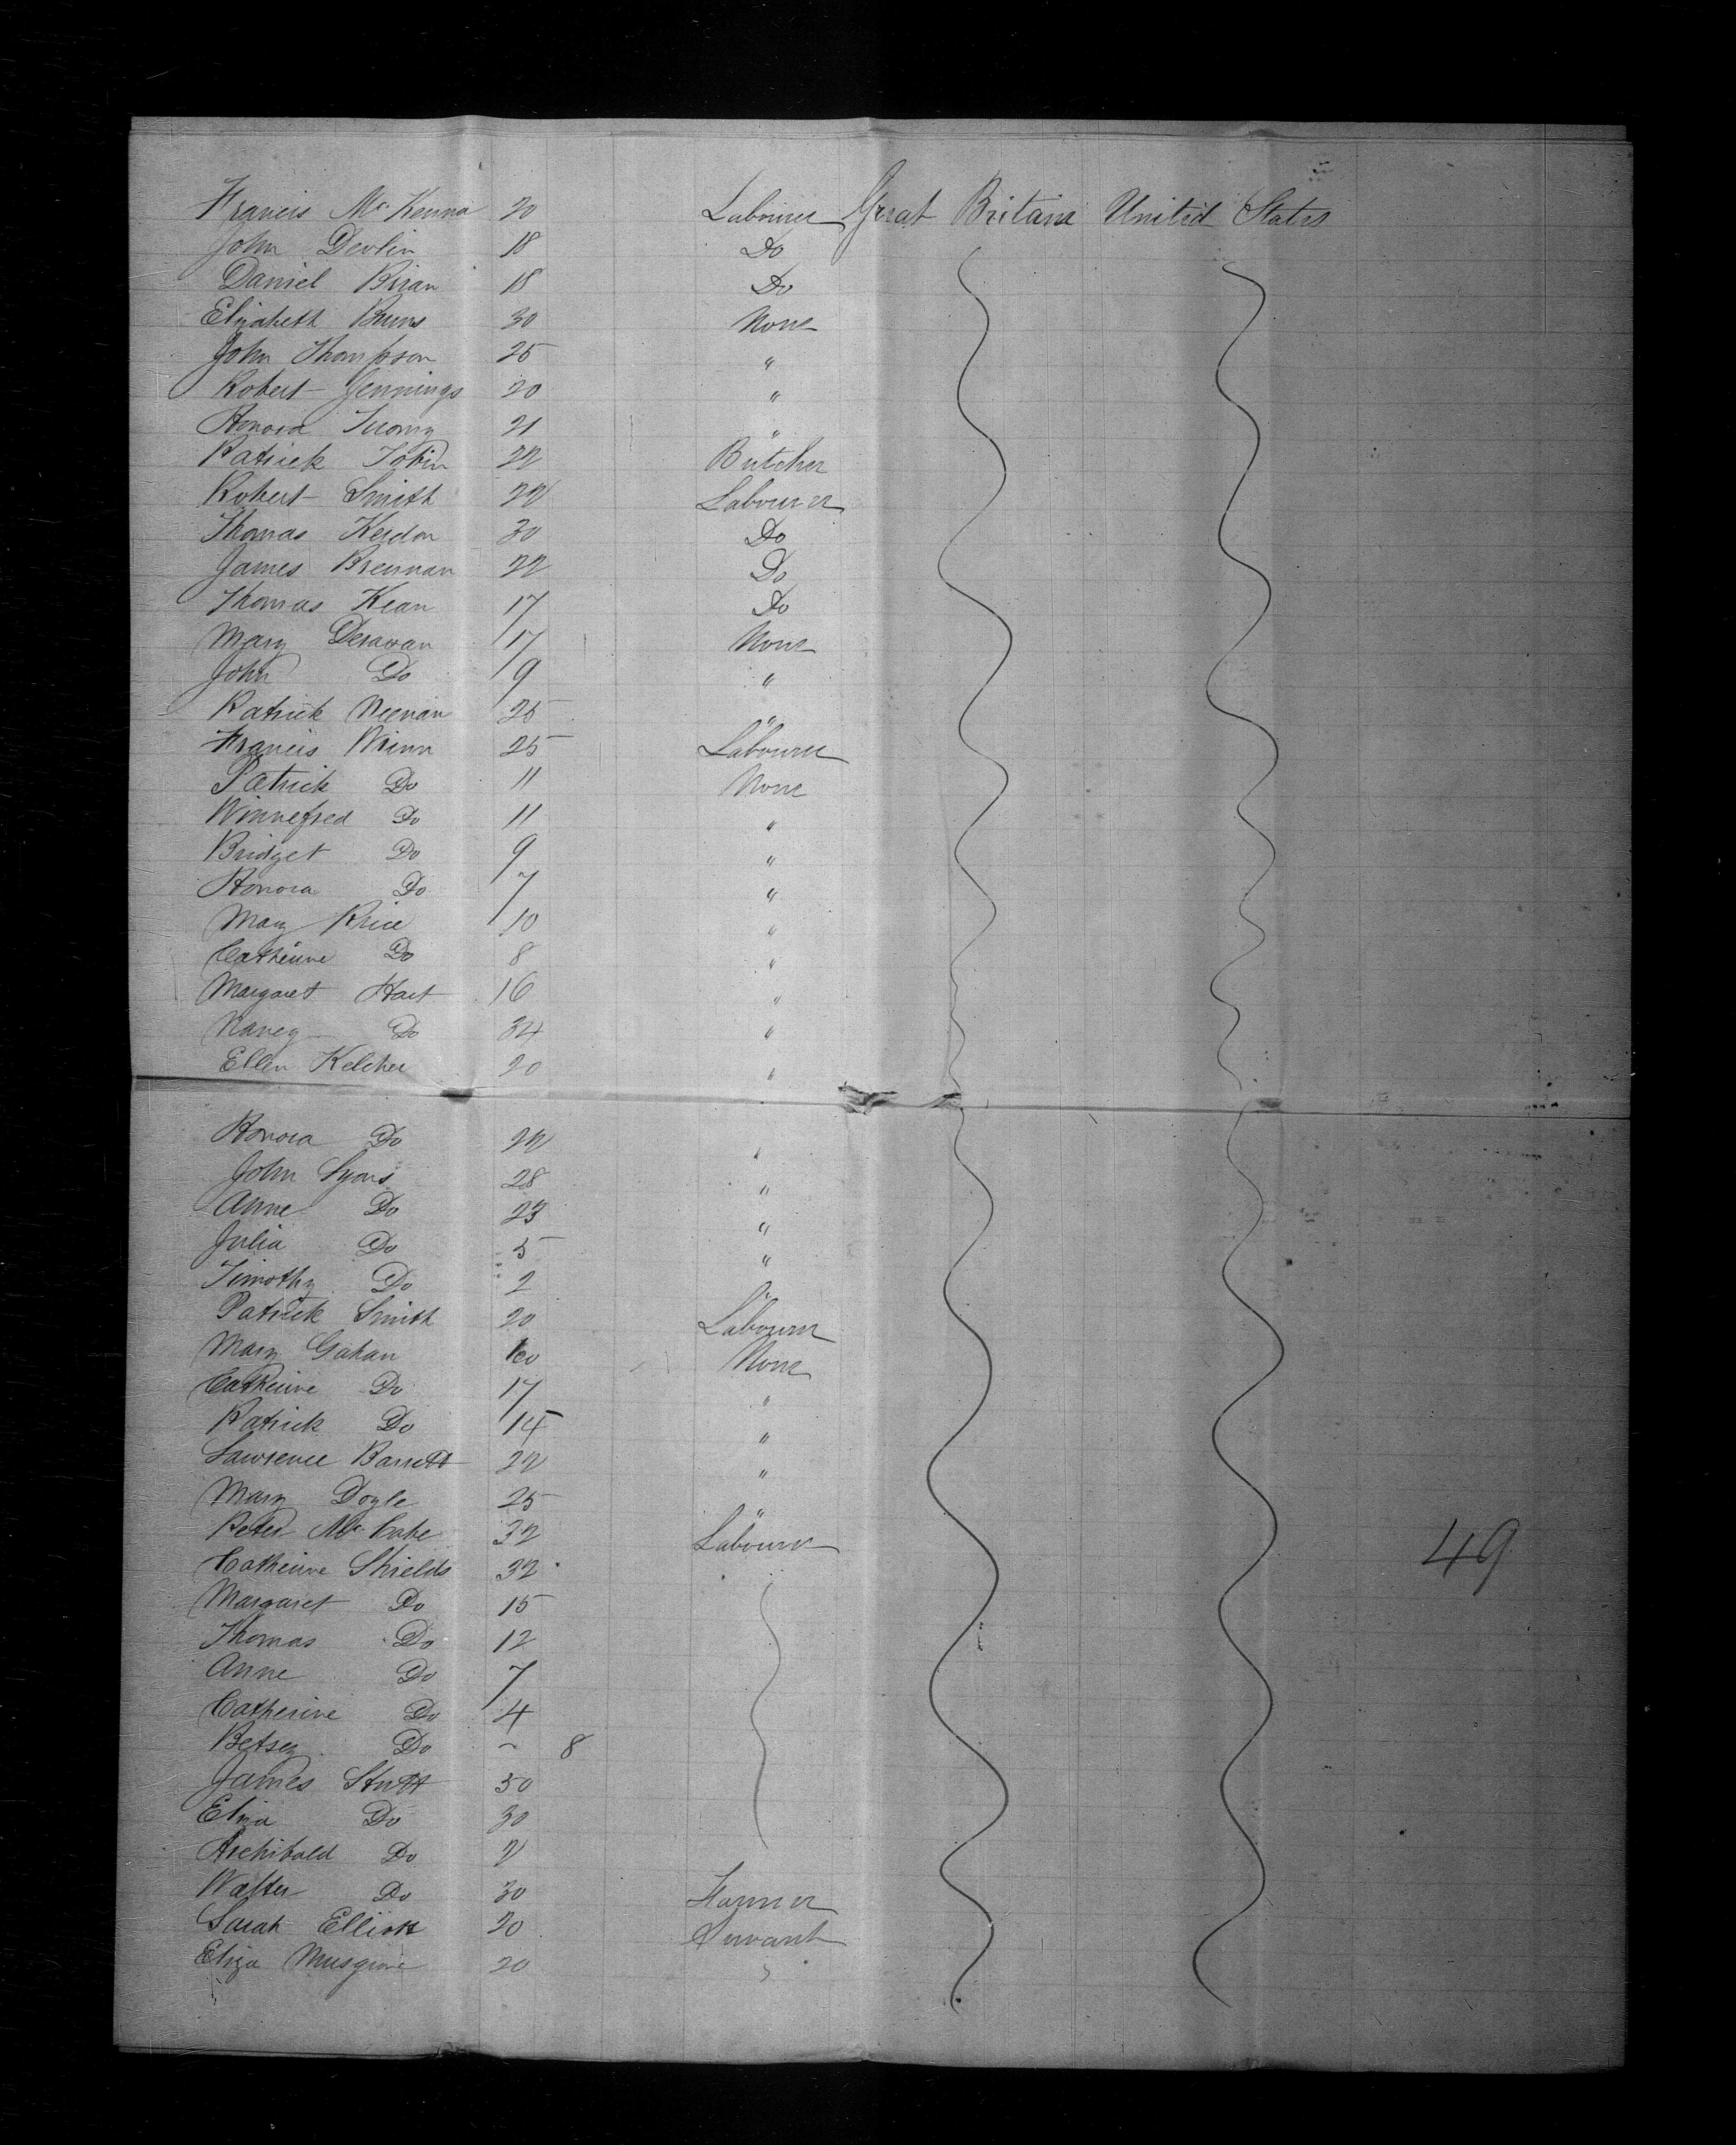 Francis McKenna 20 Labourer Great Britain United States
John Devlin 18 Do
Daniel Biran 18 Do
Elizabeth Burns 30 None
John Thompson 25 "
Robert Jennings 20 "
Honora Tuomy 21 "
Patrick Tobin 22 Butcher
Robert Smith 22 Labourer
Thomas 30 Do
James Brennan 22 Do
Thomas Kean 17 Do
Mary 17 None
John Do 9 "
Patrick Neenan 25 "
Francis Winn 25 Labourer
Patrick Do 11 None
Winnefred Do 11 "
Bridget Do 9 "
Honora Do 7 "
Mary Price 10 "
Catherine Do 8 "
Margaret Hart 16 "
Nancy Do 34 "
Ellen Kelcher 20 "
Honora Do 22 "
John Lyons 28 "
Anne Do 23 "
Julia Do 5 "
Timothy Do 2 "
Patrick Smith 20 Labourer
Mary Gahan None
Catherine Do 17 "
Patrick Do 14 "
Lawrence Barrett 22 "
Mary Doyle 25 "
Peter McCabe 32 Labourer
Catherine Shields 32
Margaret Do 15
Thomas Do 12
Anne Do 7
Catherine Do 4
Betsey Do ~ 8
James Stutt 50
Eliza Do 30
Archibald Do 2
Walter Do 30 Farmer
Sarah Elliott 20 Servant
Eliza Musgrove 20 "
49